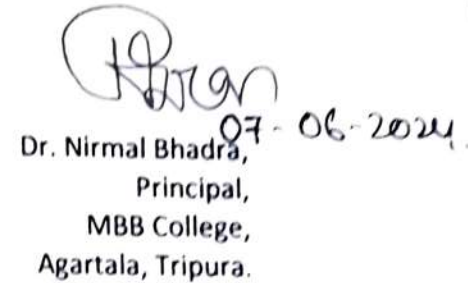 07-06-2024
Dr. Nirmal Bhadra,
Principal,
MBB College,
Agartala, Tripura.